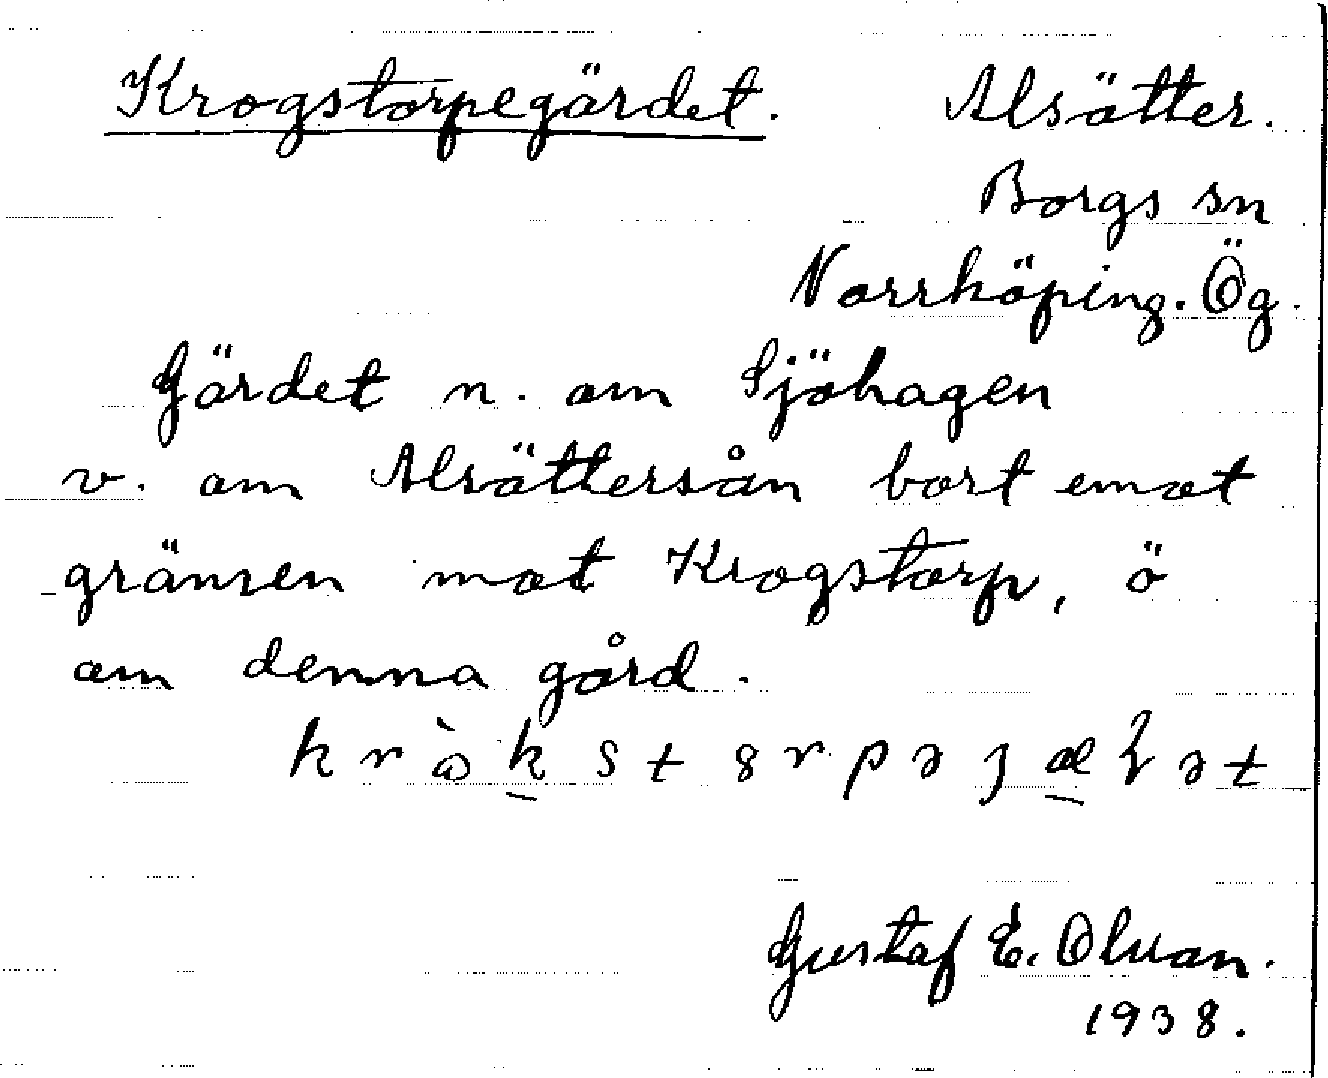 Krogstorpegärdet. Alsätter.
Borgs sn
Norrköping. Ög.
Gärdet n. om Sjöhagen
v. om Alsättersån bort emot
gränsen mot Krogstorp, ö
om denna gård.
Gustaf E. Olsson.
1938.